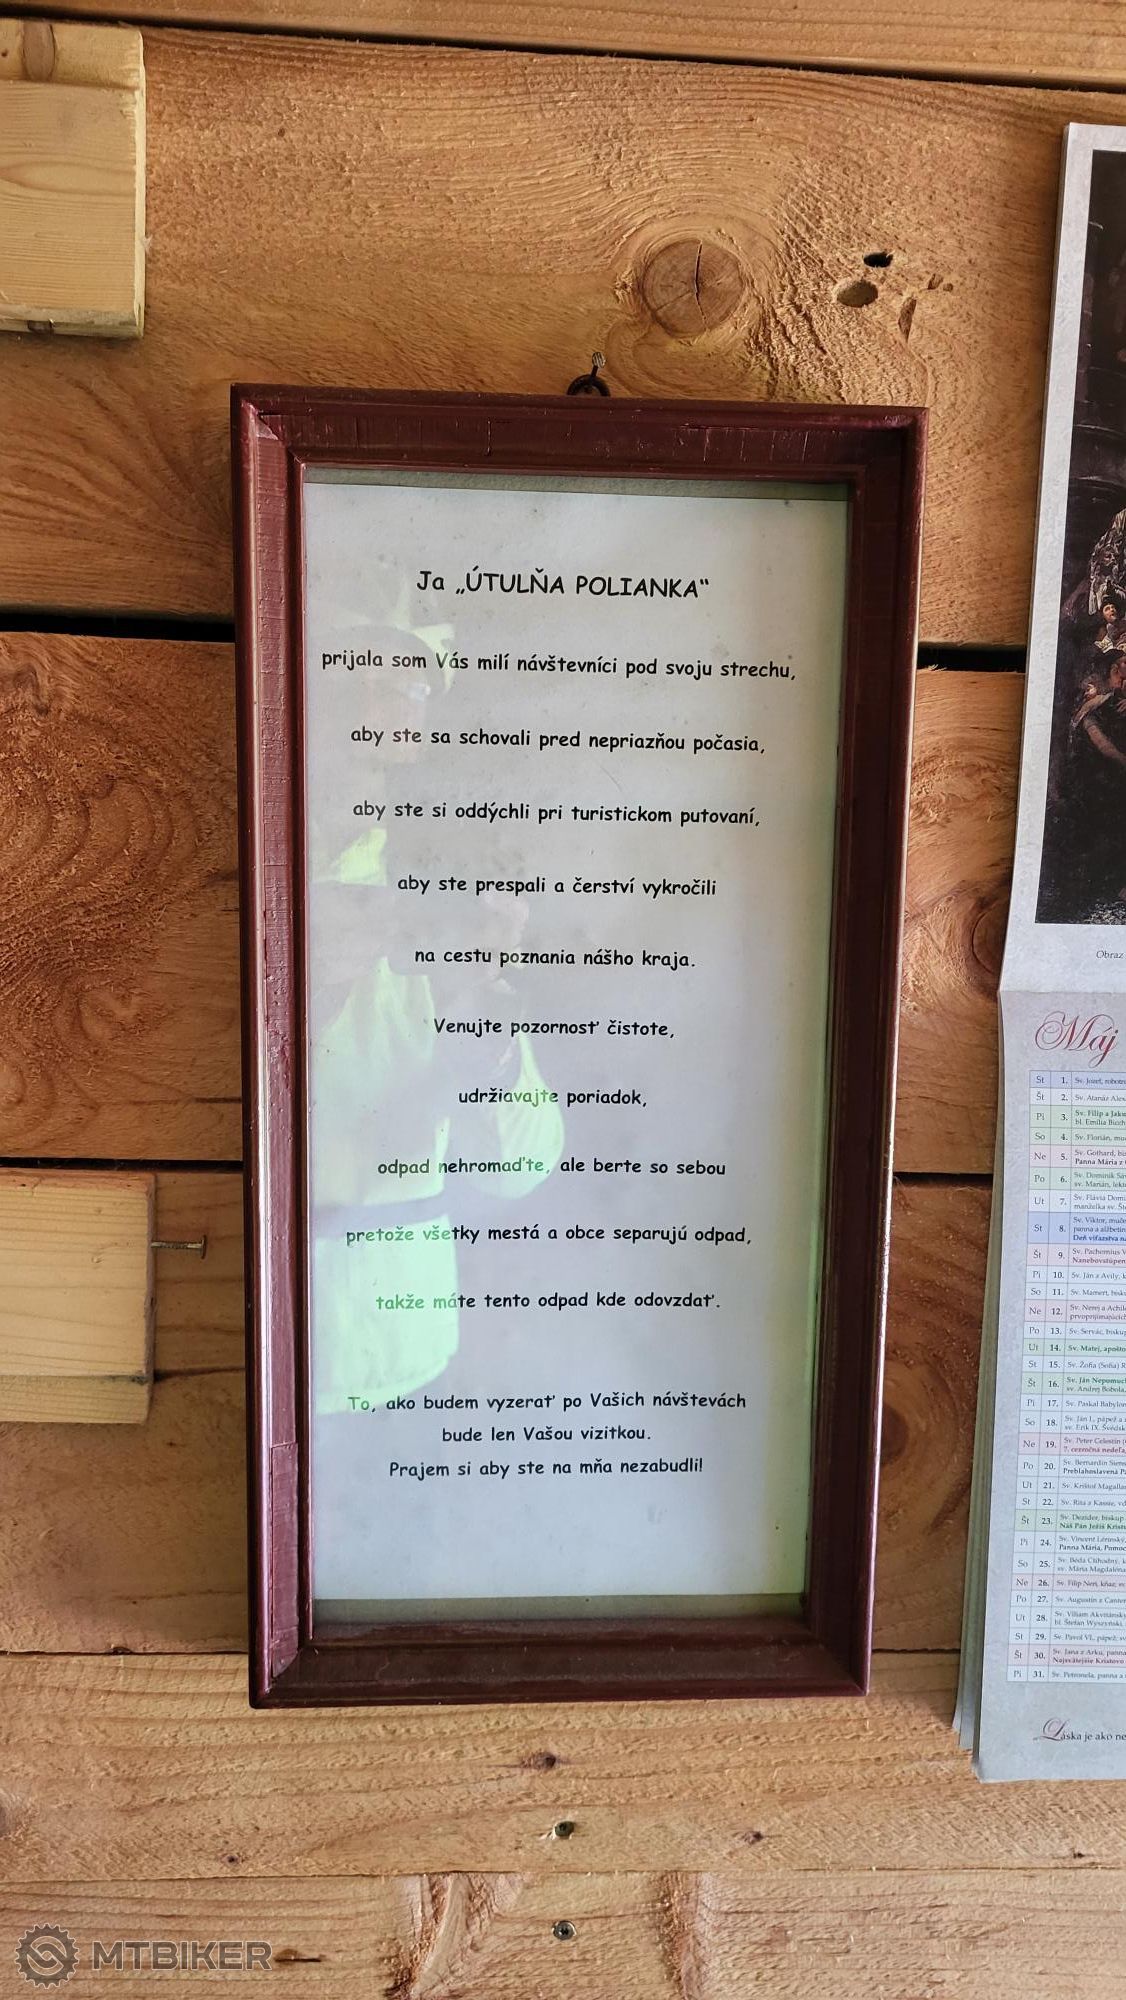 Ja „ÚTULŇA POLIANKA“
prijala som Vás milí návštevníci pod svoju strechu,
aby ste sa schovali pred nepriazňou počasia,
aby ste si oddýchli pri turistickom putovaní,
aby ste prespali a čerství vykročili
na cestu poznania nášho kraja.
Venujte pozornosť čistote,
udržiavajte poriadok,
odpad nehromaďte, ale berte so sebou
pretože všetky mestá a obce separujú odpad,
takže máte tento odpad kde odovzdať.
To, ako budem vyzerať po Vašich návštevách
bude len Vašou vizitkou.
Prajem si aby ste na mňa nezabudli!
Obraz
Máj
St 1. Sv. Jozef,
Št 2. Sv. Atanáz
Pi 3. Sv. Filip a
bl. Emília
So 4. Sv. Florián,
Ne 5. Sv. Gothard,
Panna Mária z
Po 6. Sv. Dominik
sv. Marián,
Ut 7. Sv. Flávia
manželka sv.
St 8. Sv. Viktor,
panna a
Deň víťazstva
Št 9. Sv. Pachomius
Pi 10. Sv. Ján z Avily,
So 11. Sv. Mamert,
Ne 12. Sv. Nerej a
Po 13. Sv. Servác,
Ut 14. Sv. Matej,
St 15. Sv. Žofia (Sofia)
Št 16. Sv. Ján
sv. Andrej Bobola,
Pi 17. Sv. Paskal
So 18. Sv. Ján I., pápež a
sv. Erik IX.
Ne 19. Sv. Peter Celestín
7.
Po 20. Sv. Bernardín
Preblahoslavená
Ut 21. Sv. Krištof
St 22. Sv. Rita z Kassie,
Št 23. Sv. Dezider, biskup
Náš Pán Ježiš
Pi 24. Sv. Vincent
Panna Mária,
So 25. Sv. Béda Ctihodný,
sv. Mária Magdaléna
Ne 26. Sv. Filip Neri, kňaz;
Po 27. Sv. Augustín z
Ut 28. Sv. Viliam
bl. Štefan
St 29. Sv. Pavol VI., pápež;
Št 30. Sv. Jana z Arku, panna
Pi 31. Sv. Petronela, panna a
Láska je ako
MTBIKER